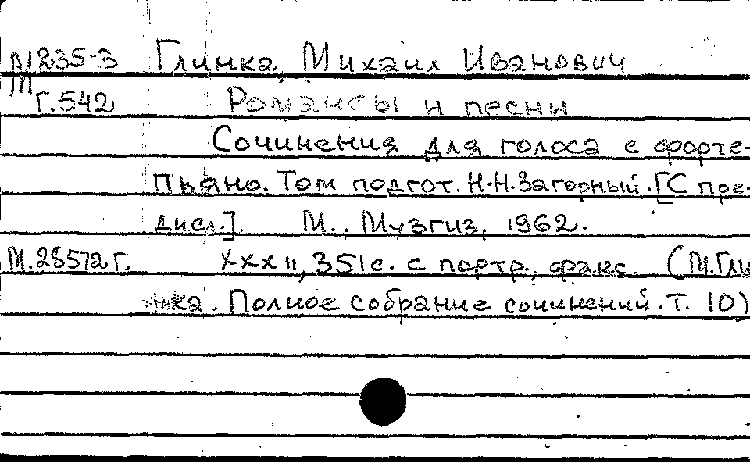 М 235-3 Глинка, Михаил Иванович
Г.542 Романсы и песни
Сочинения для голоса с форте-
пьяно. Том подгот. Н.Н.Загорный. [С пре-
дисл.] М., Музгиз, 1962.
М.28572г. XXXII, 351с. с портр., факс. (М.Гли
нка. Полное собрание сочинений. Т. 10)